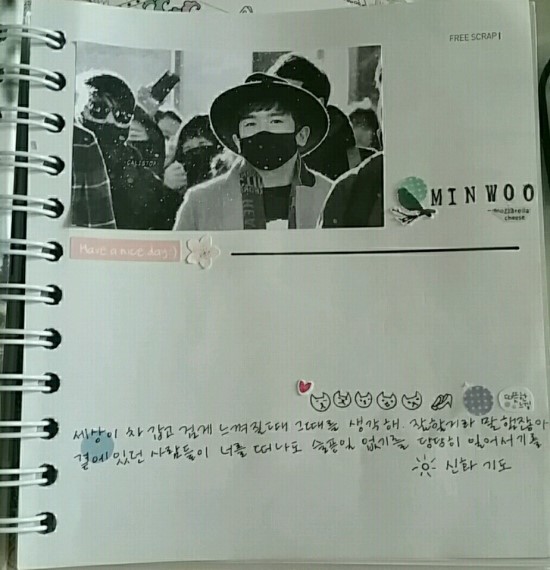 FREE SCRAP |
CALLSTOP
MINWOO
mozzarella
cheese
Have a nice day :)
따뜻한
느낌
세상이 차갑고 검게 느껴질때 그때를 생각해. 잘할거라 말했잖아
곁에 있던 사람들이 너를 떠나도 슬픈일 없기를 당당히 일어서기를
신화 기도